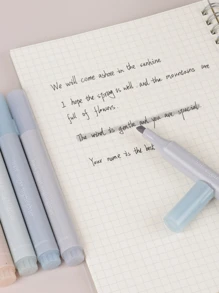 We will come ashore in the sunshine
I hope the spring is well, and the mountains are
full of flowers.
The wind is gentle and you are special
Your name is the best